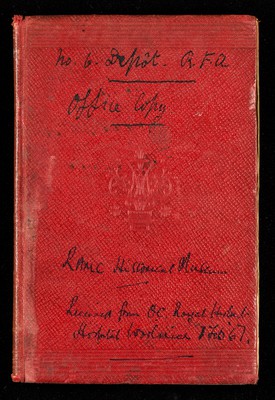 No. 6. Depôt. R.F.A
Office Copy
RAMC Historical Museum
Received from OC Royal Herbert
Hospital Woolwich Feb '67.